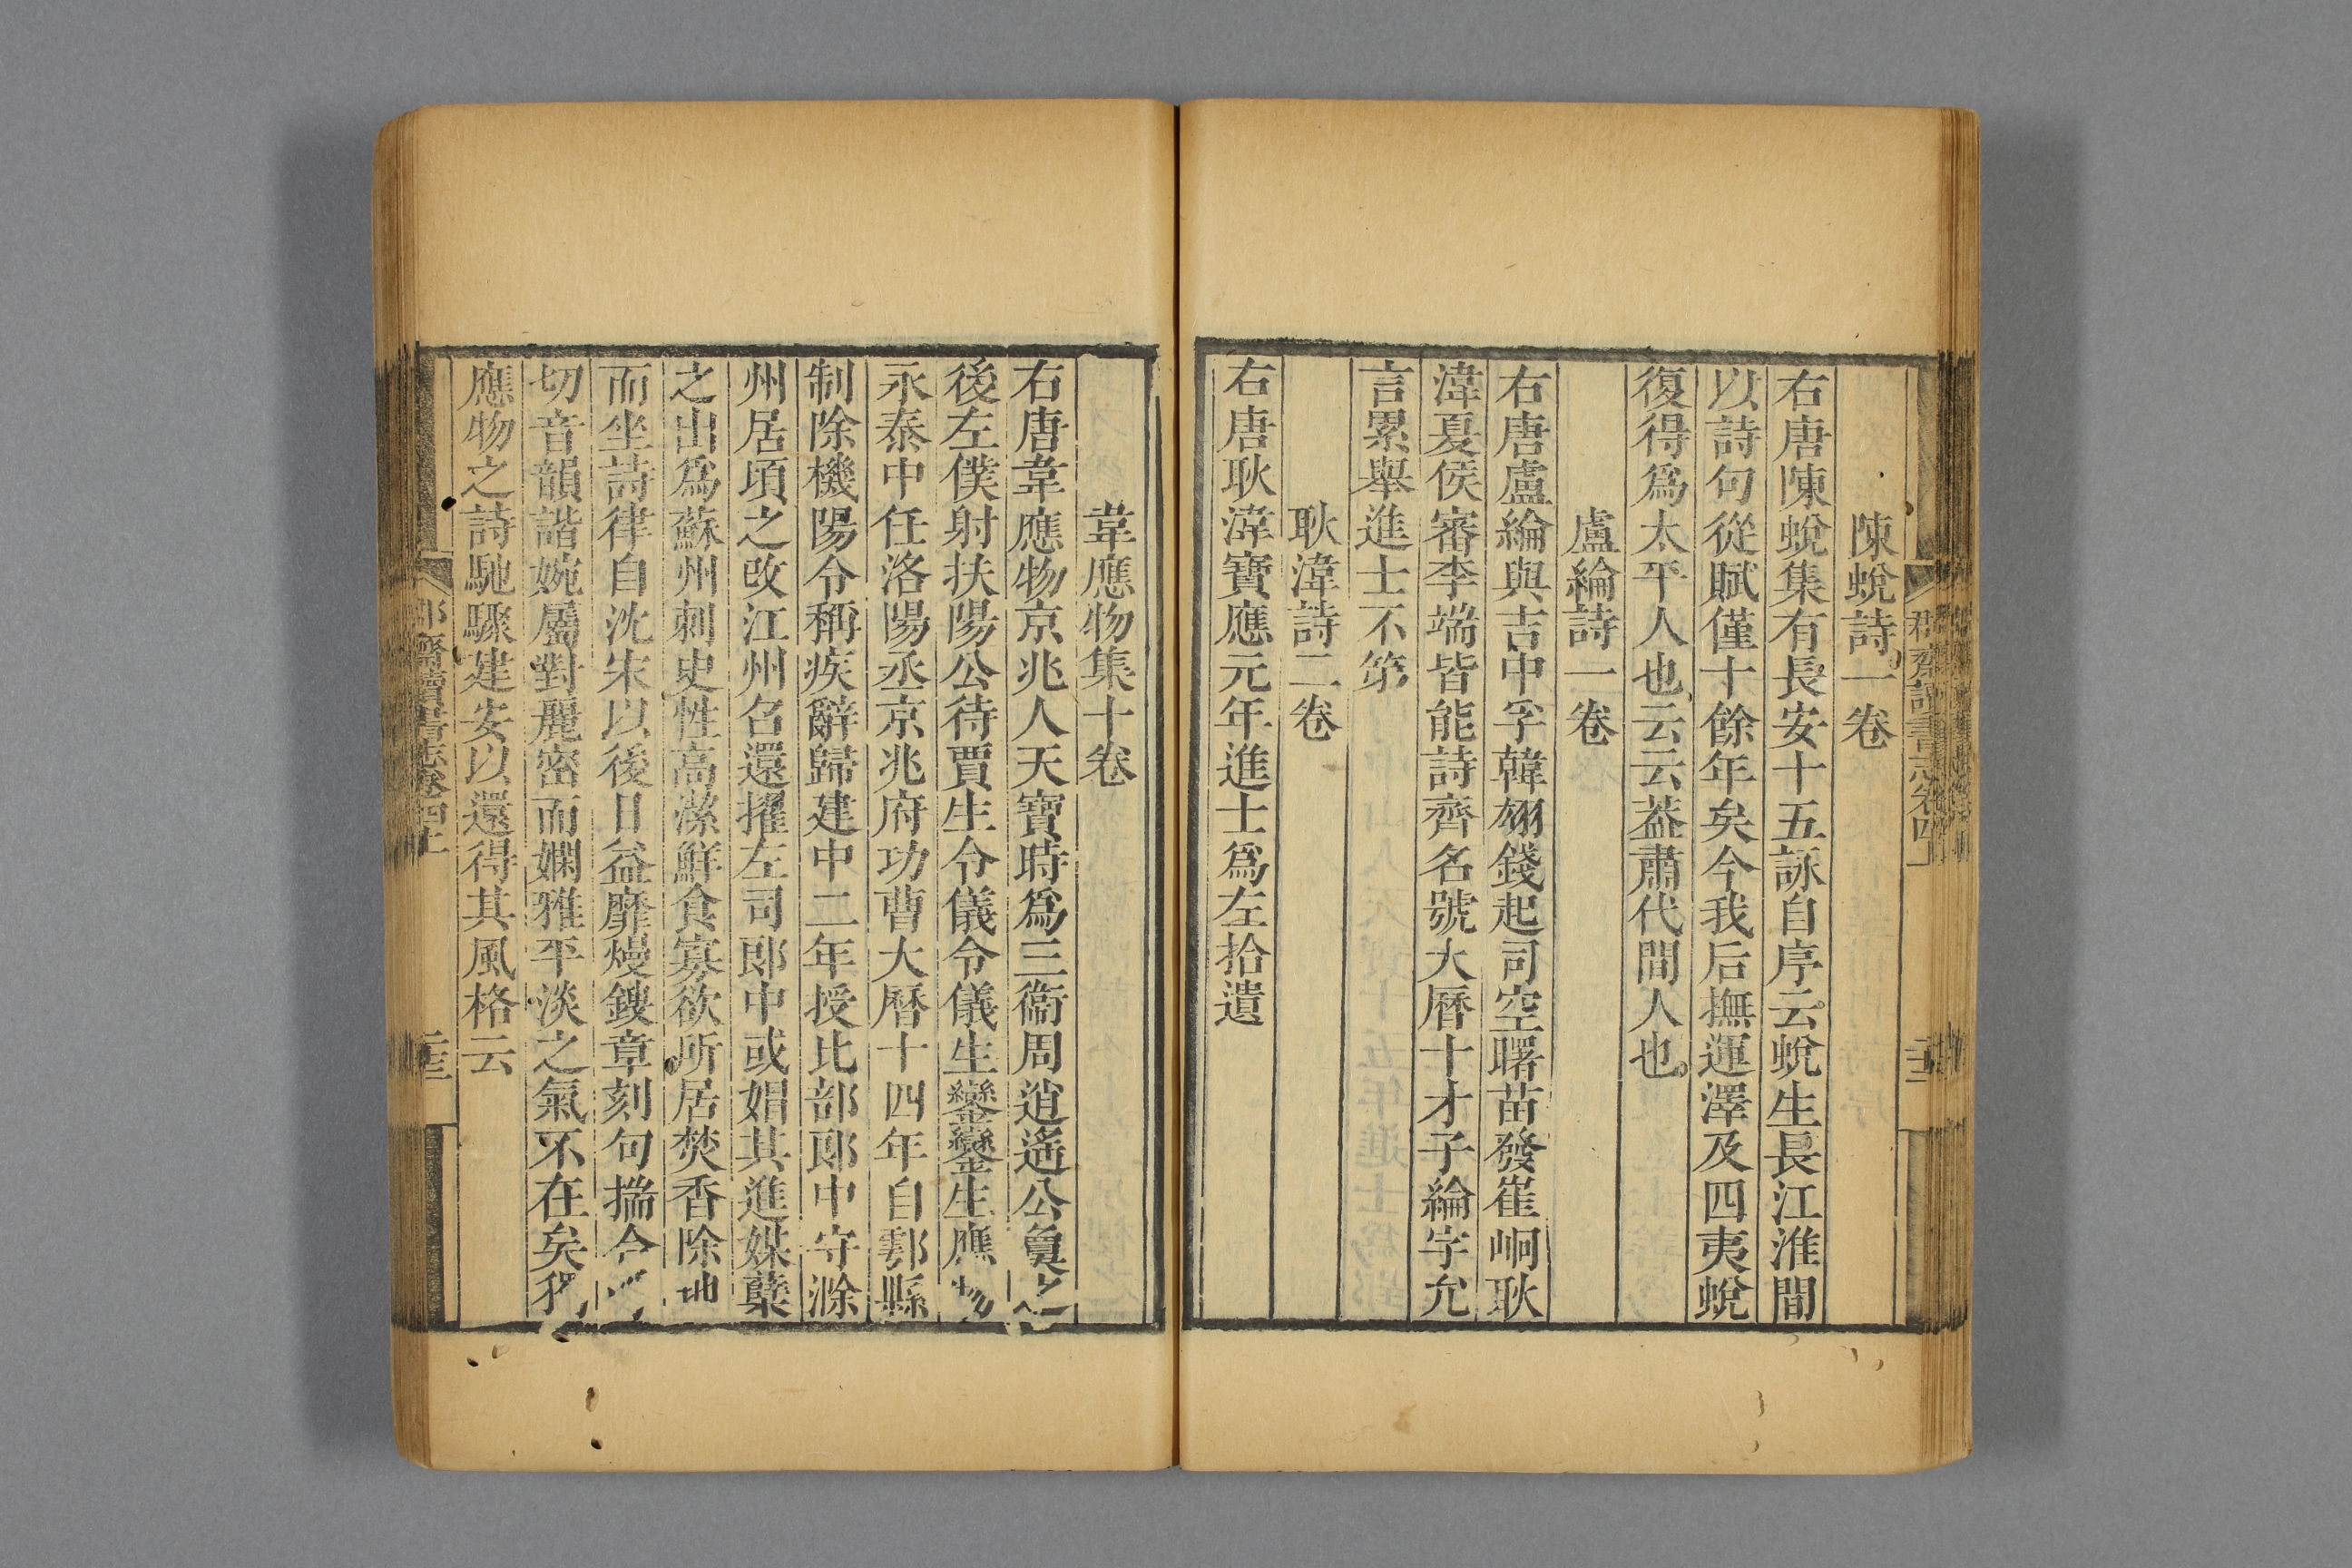 陳蛻詩一卷
右唐陳蛻集有長安十五詠自序云蛻生長江淮間
以詩句從賦僅十餘年矣今我后撫運澤及四夷蛻
復得爲太平人也云云葢肅代間人也
盧綸詩一卷
右唐盧綸與吉中孚韓翃錢起司空曙苗發崔峒耿
湋夏侯審李端皆能詩齊名號大曆十才子綸字允
言累舉進士不第
耿湋詩二卷
右唐耿湋寶應元年進士爲左拾遺
韋應物集十卷
右唐韋應物京兆人天寶時爲三衞周逍遙公敻之
後左僕射扶陽公待賈生令儀令儀生鑾鑾生應物
永泰中任洛陽丞京兆府功曹大曆十四年自鄠縣
制除櫟陽令稱疾辭歸建中二年授比部郎中守滁
州居頃之改江州召還擢左司郎中或媢其進媒蘗
之出爲蘇州刺史性高潔鮮食寡欲所居焚香除地
而坐詩律自沈宋以後日益靡熳鎪章刻句揣合
切音韻諧婉屬對麗密而嫻雅平淡之氣不在矣獨
應物之詩馳驟建安以還得其風格云
郡齋讀書志卷四上